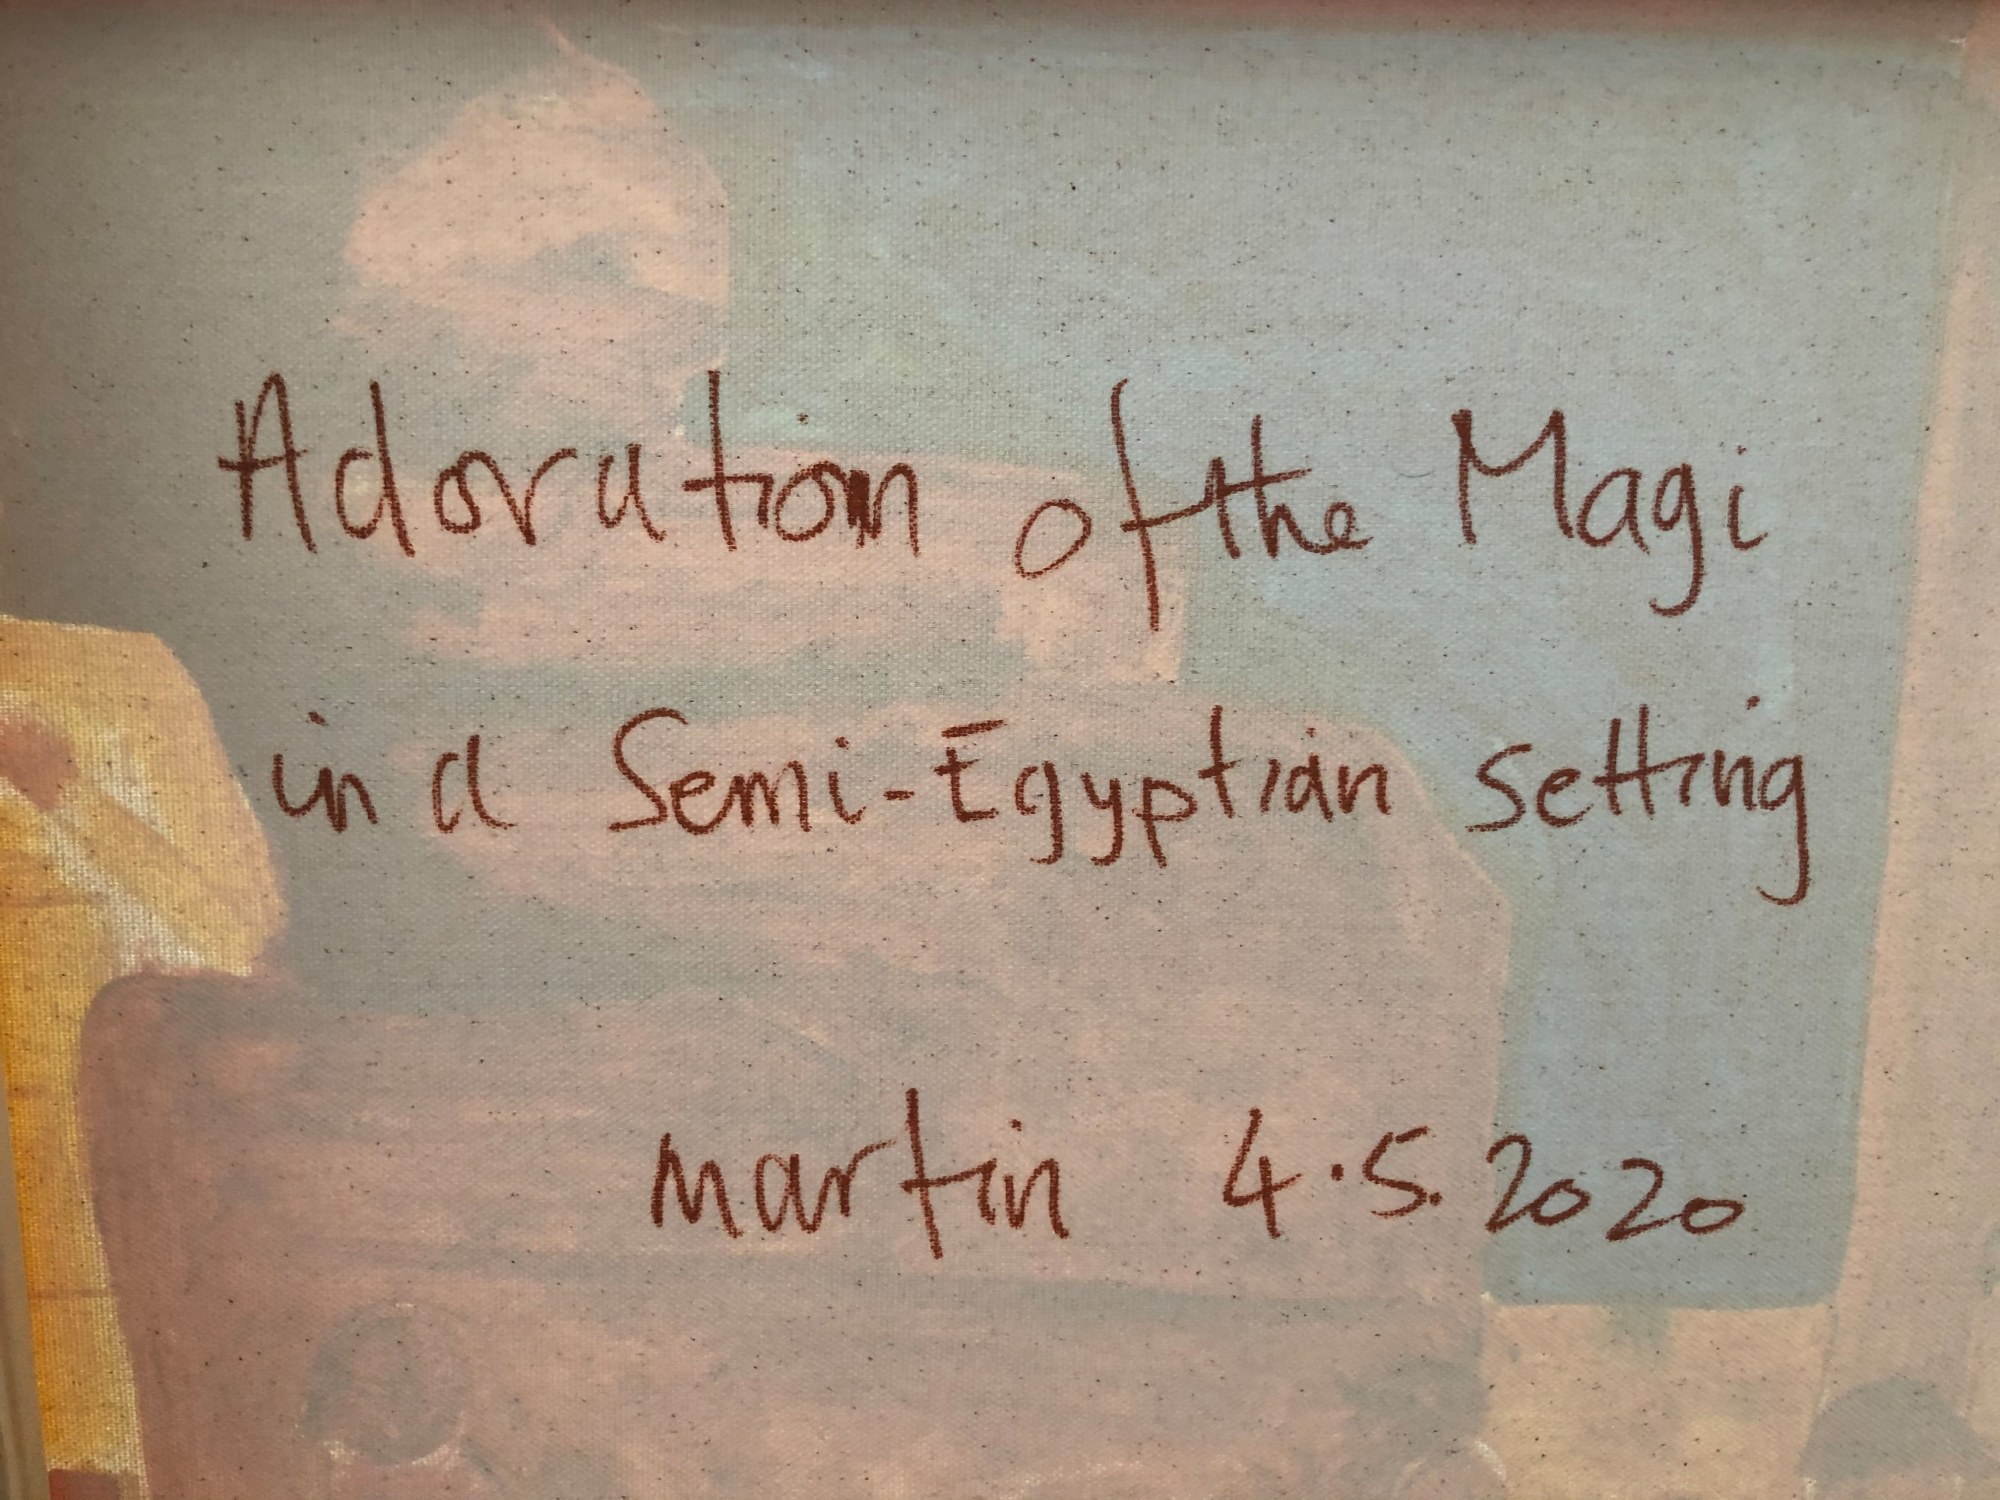 Adoration of the Magi
in a Semi-Egyptian setting
martin 4.5.2020